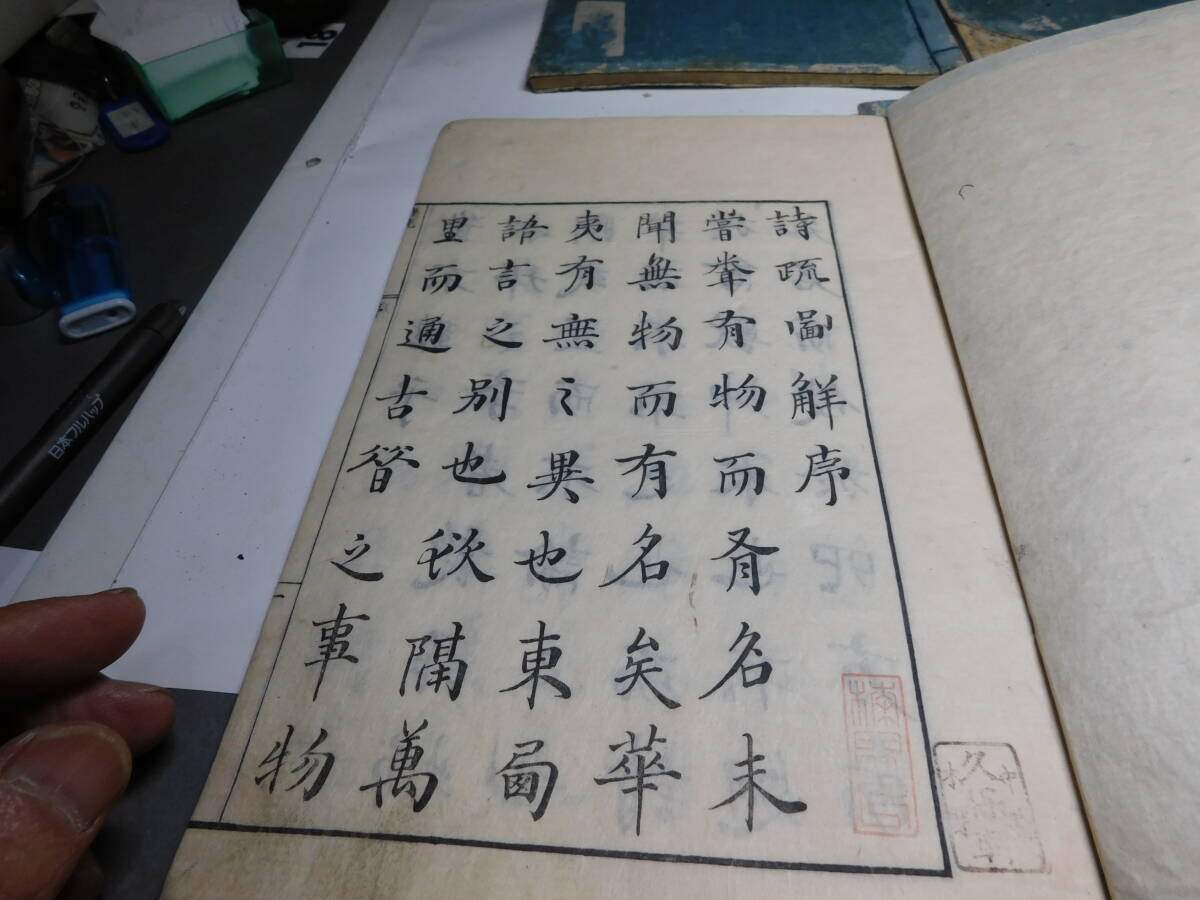 詩疏圖解序
嘗有物而有名未
聞無物而有名矣華
夷有無之異也東卥
語言之別也然隔萬
里而通古昔之事物
日本フルハップ
18